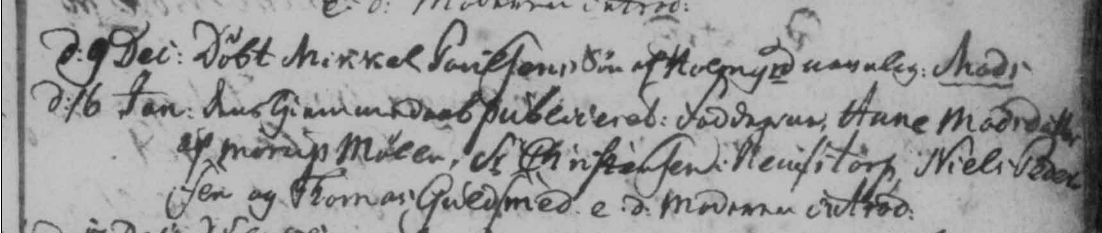 e: d: Moderen introd:
d: 9 Dec: Døbt Mikkel Poulsens Søn af Holmgrd navnlig: Mads
d: 16 Jan: dens Hiemmedaab publiceret: Fadderne, Anne Madsdatter
af Morup Mølle, Chr Christensen i Keilstorp, Niels Peder
sen og Thomas Guldsmed. e: d: Moderen introd: